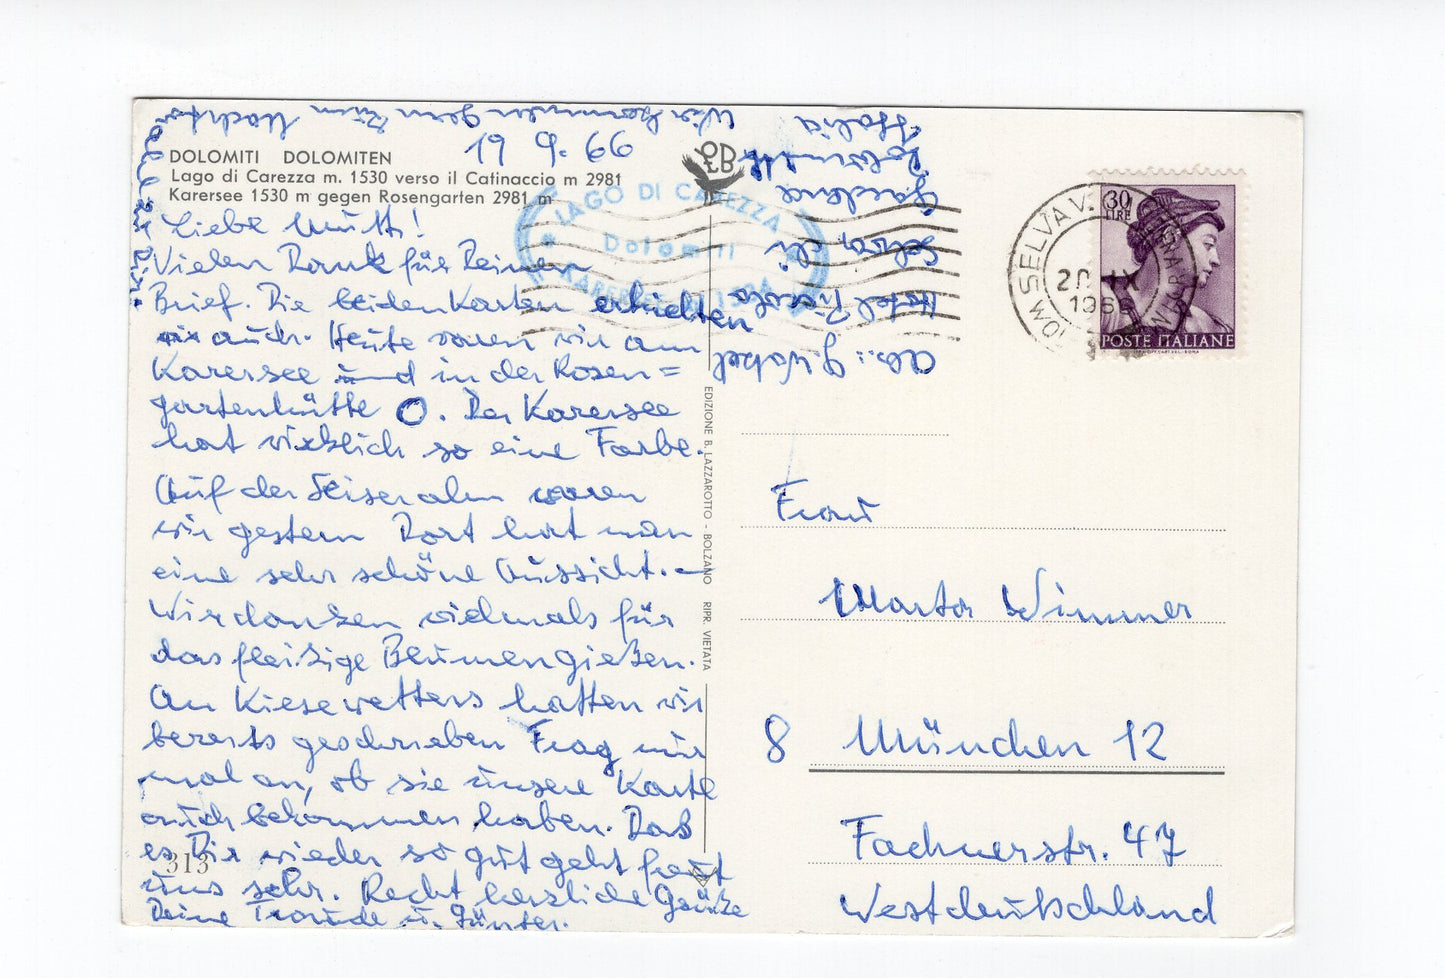 Wir kommen gern zum Nachtessen
zu Dir.
19. 9. 66
DOLOMITI DOLOMITEN
Lago di Carezza m. 1530 verso il Catinaccio m 2981
Karersee 1530 m gegen Rosengarten 2981 m
Liebe Mutti!
Vielen Dank für Deinen
Brief. Die beiden Karten erhielten
wir auch. Heute waren wir am
Karersee und in der Rosen=
gartenhütte O. Der Karersee
hat wirklich so eine Farbe.
Auf der Seiseralm waren
wir gestern Dort hat man
eine sehr schöne Aussicht.–
Wir danken vielmals für
das fleißige Blumengießen.
An Kiesewetters hatten wir
bereits geschrieben Frag mir
mal an, ob sie unsere Karte
auch bekommen haben. Daß
es Dir wieder so gut geht freut
uns sehr. Recht herzliche Grüße
Deine Traude u. Günter.
313
LAGO DI CAREZZA
Dolomiti
KARERSEE
EDIZIONE B. LAZZAROTTO - BOLZANO RIPR. VIETATA
Abs.: G. Wabel
Hotel Piccolo
Selva di
Gardena
Dolomiti
Italia
SELVA V.
20 IX
1966
30
LIRE
POSTE ITALIANE
Frau
Marta Wimmer
8 München 12
Fachnerstr. 47
Westdeutschland